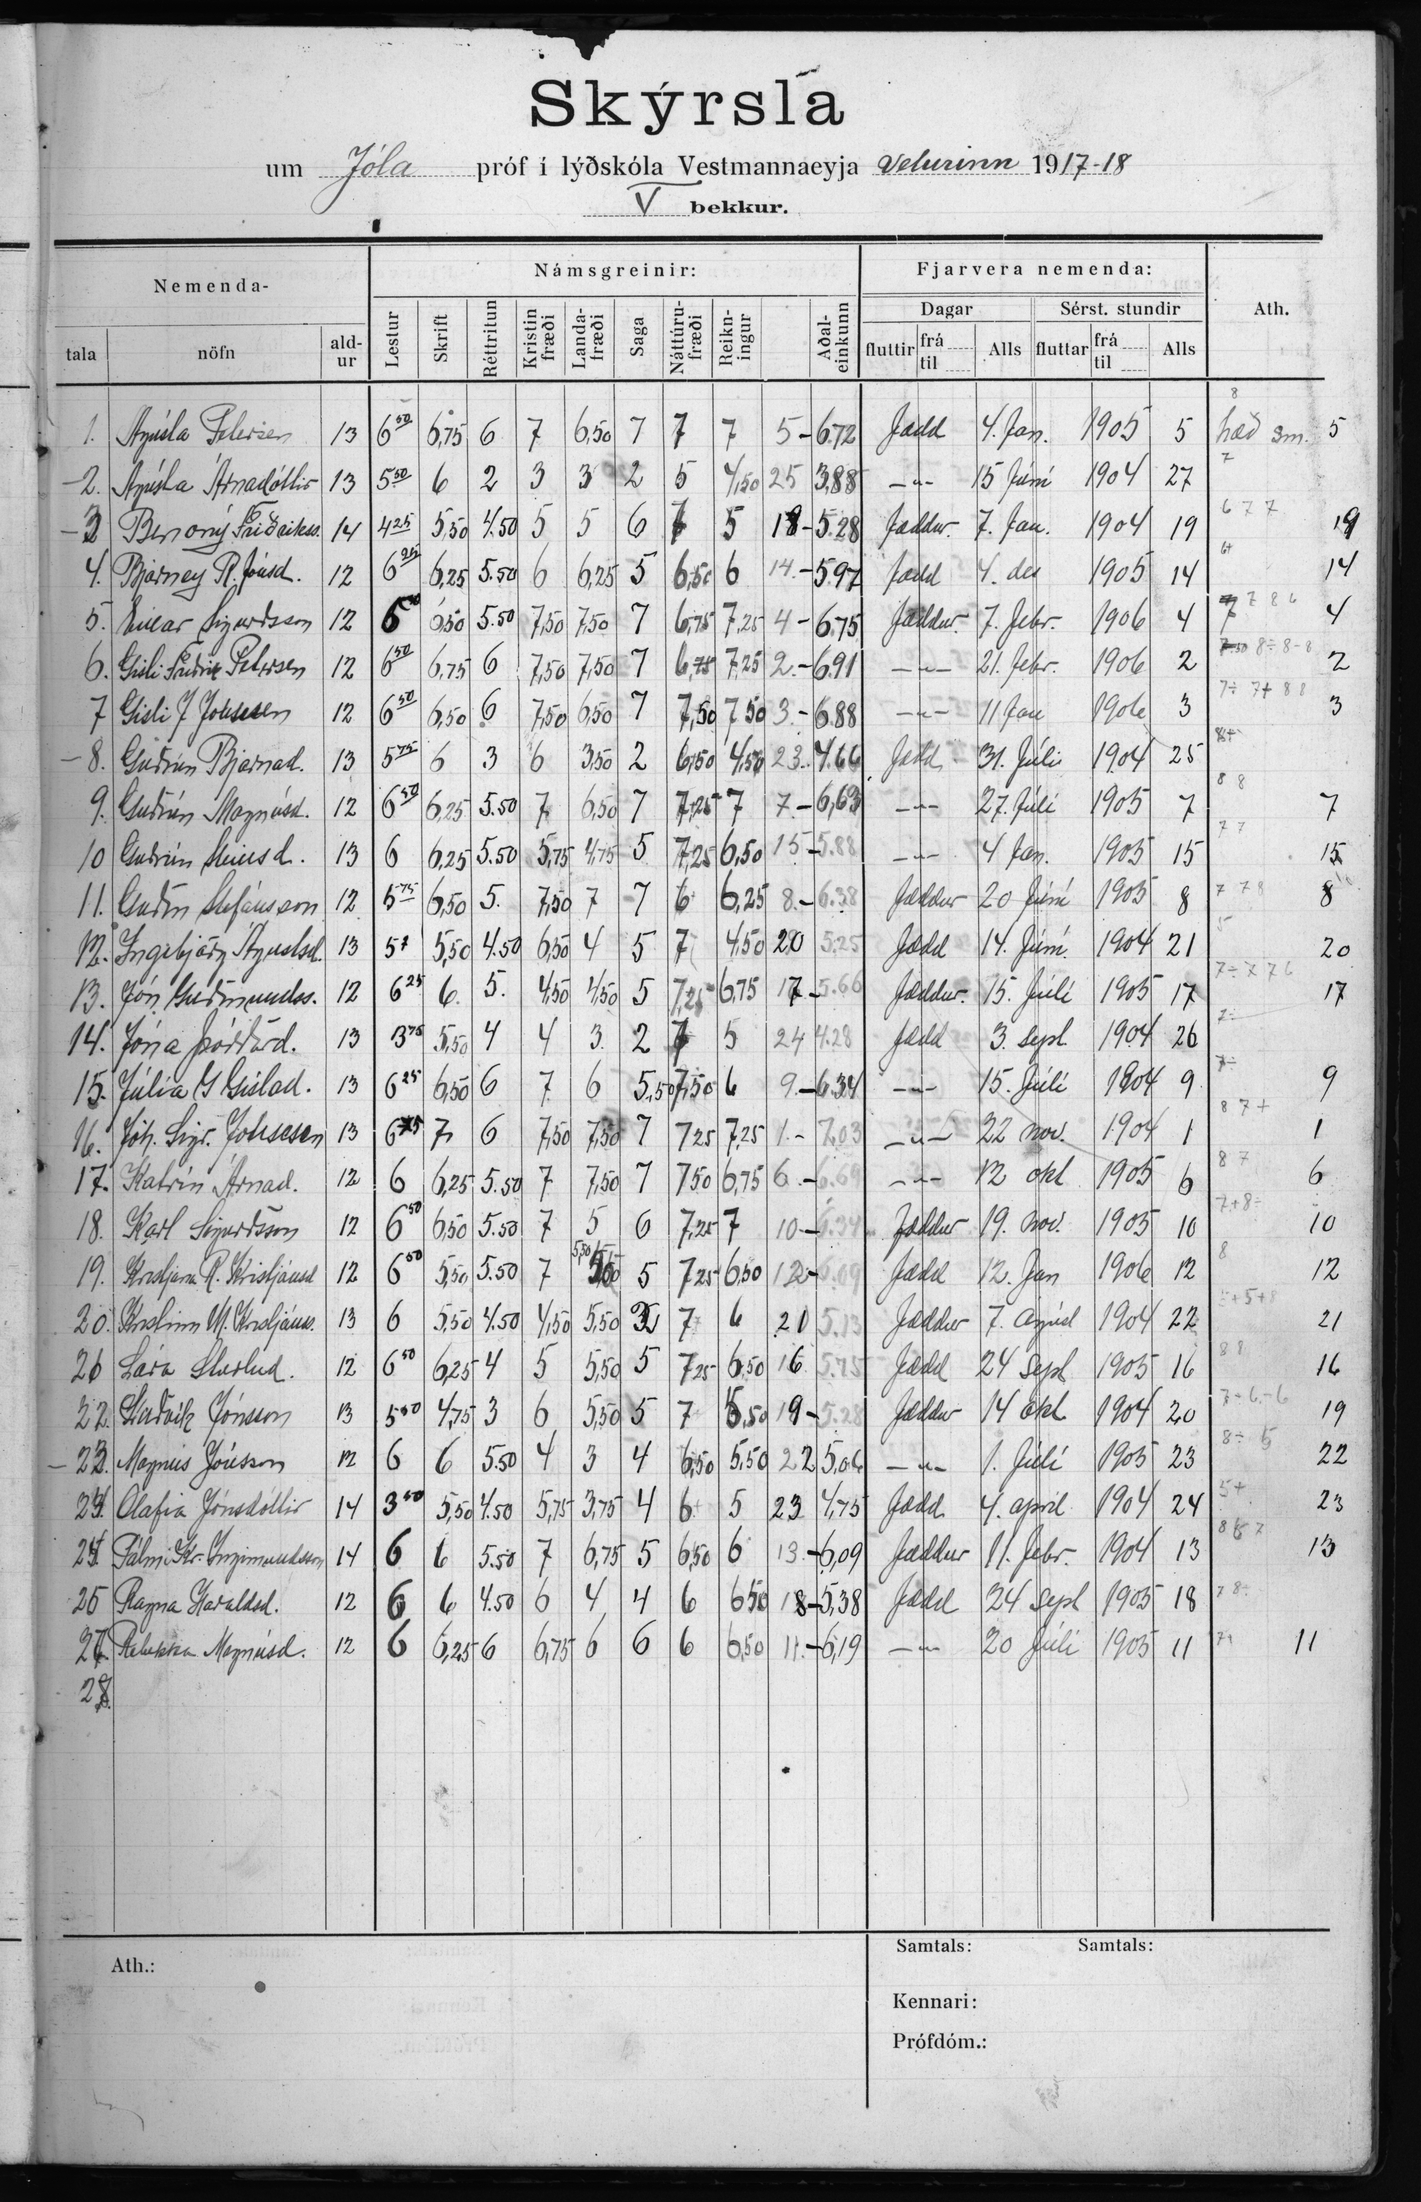 Skýrsla
um Jóla próf í lýðskóla Vestmannaeyja veturinn 1917-18
V bekkur.
Nemenda- Námsgreinir: Fjarvera nemenda: Ath.
Dagar Sérst. stundir
tala nöfn ald-ur Lestur Skrift Réttritun Kristin fræði Landa-fræði Saga Náttúru-fræði Reikn-ingur Aðal-einkunn fluttir frá til Alls fluttar frá til Alls
1. Ágústa Petersen 13 6 50 6,75 6 7 6,50 7 7 7 5 - 6.72 fædd 4. Jan. 1905 5 hæð sm. 5
2. Ágústa Árnadóttir 13 5 50 6 2 3 3 2 5 4,50 25 3,88 -„- 15 Júní 1904 27
3 Benoný Friðrikss. 14 4 25 5,50 4.50 5 5 6 7 5 18 - 5.28 fæddur. 7. Jan. 1904 19 6 7 7 19
4. Bjarney R. Jónsd. 12 6 25 6,25 5.50 6 6,25 5 6,50 6 14. - 5.97 fædd 4. des 1905 14 14
5. Einar Sigurdsson 12 6 50 6,50 5.50 7,50 7,50 7 6,75 7,25 4 - 6,75 fæddur. 7. febr. 1906 4 4
6. Gísli Friðrik Petersen 12 6 50 6,75 6 7,50 7,50 7 6,75 7,25 2. - 6.91 -„- 21. febr. 1906 2 2
7 Gísli J Johnsen 12 6 50 6,50 6 7,50 6,50 7 7,50 7 50 3. - 6.88 -„- 11 Jan 1906 3 7÷ 7+ 8 8 3
8. Guðrún Bjarnad. 13 5 75 6 3 6 3,50 2 6,50 4,50 23. 4.66 fædd 31. Júlí 1904 25
9. Guðrún Magnúsd. 12 6 50 6,25 5.50 7 6,50 7 7,25 7 7 - 6,63 -„- 27. Júlí 1905 7 8 8 7
10 Guðrún Steinsd. 13 6 6,25 5.50 5,75 4,75 5 7,25 6,50 15 - 5.88 -„- 4 Jan. 1905 15 7 7 15
11. Guðm Stefánsson 12 5 75 6,50 5. 7,50 7 7 6 6,25 8. - 6.38 fæddur 20 Júní 1905 8 8
12. Ingibjörg Ágústsd. 13 5 7 5,50 4.50 6,50 4 5 7 4,50 20 5.25 fædd 14. Júní 1904 21 5 20
13. Jón Guðmundss. 12 6 25 6. 5. 4,50 4,50 5 7,25 6,75 17 - 5.66 fæddur. 15. Júlí 1905 17 7÷ 7 7 6 17
14. Jóna Þórðard. 13 3 75 5,50 4 4 3. 2 7 5 24 4.28 fædd 3. sept 1904 26 7÷
15. Júlía G Gíslad. 13 6 25 6,50 6 7 6 5,50 7,50 6 9. - 6.34 -„- 15. Júlí 1904 9 7÷ 9
16. Jóh. Sigr. Johnsen 13 6 75 7 6 7,50 7,50 7 7 25 7,25 1. - 7,03 -„- 22 nóv. 1904 1 8 7 + 1
17. Katrín Árnad. 12 6 6,25 5.50 7 7,50 7 7 50 6,75 6. - 6.69 -„- 12 okt 1905 6 8 7 6
18. Karl Sigurðsson 12 6 50 6,50 5.50 7 5 6 7,25 7 10 - 6.34 fæddur 19. nóv. 1905 10 7+8÷ 10
19. Kristjana R. Kristjánsd 12 6 50 5,50 5.50 7 5 7 25 6,50 12 - 6.09 fædd 12. Jan 1906 12 8 12
20. Kristinn M. Kristjánss. 13 6 5,50 4.50 4,50 5,50 7 6 21 5.13 fæddur 7. ágúst 1904 22 21
21 Lára Sturlud. 12 6 50 6,25 4 5 5,50 5 7 25 6,50 16 5.75 fædd 24 Sept 1905 16 8 8 16
22. Lúðvík Jónsson 13 5 50 4,75 3 6 5,50 5 7 5,50 19 - 5.28 fæddur 14 okt 1904 20 7-6-6 19
23. Magnús Jónsson 12 6 6 5.50 4 3 4 6,50 5,50 22 5,06 -„- 1. Júlí 1905 23 8÷ 5 22
24. Ólafía Jónsdóttir 14 3 50 5,50 4.50 5,75 3,75 4 6 5 23 4,75 fædd 4. apríl 1904 24 5+ 23
25. Pálmi Kr. Ingimundsson 14 6 6 5.50 7 6,75 5 6,50 6 13. - 6,09 fæddur 11. febr. 1904 13 13
26 Ragna Haraldsd. 12 6 6 4.50 6 4 4 6 6 50 18 - 5,38 fædd 24 Sept 1905 18 7 8÷
27. Rebekka Magnúsd. 12 6 6,25 6 6,75 6 6 6 6,50 11. - 6,19 -„- 20 Júlí 1905 11 7+ 11
28.
Samtals: Samtals:
Ath.:
Kennari:
Prófdóm.: